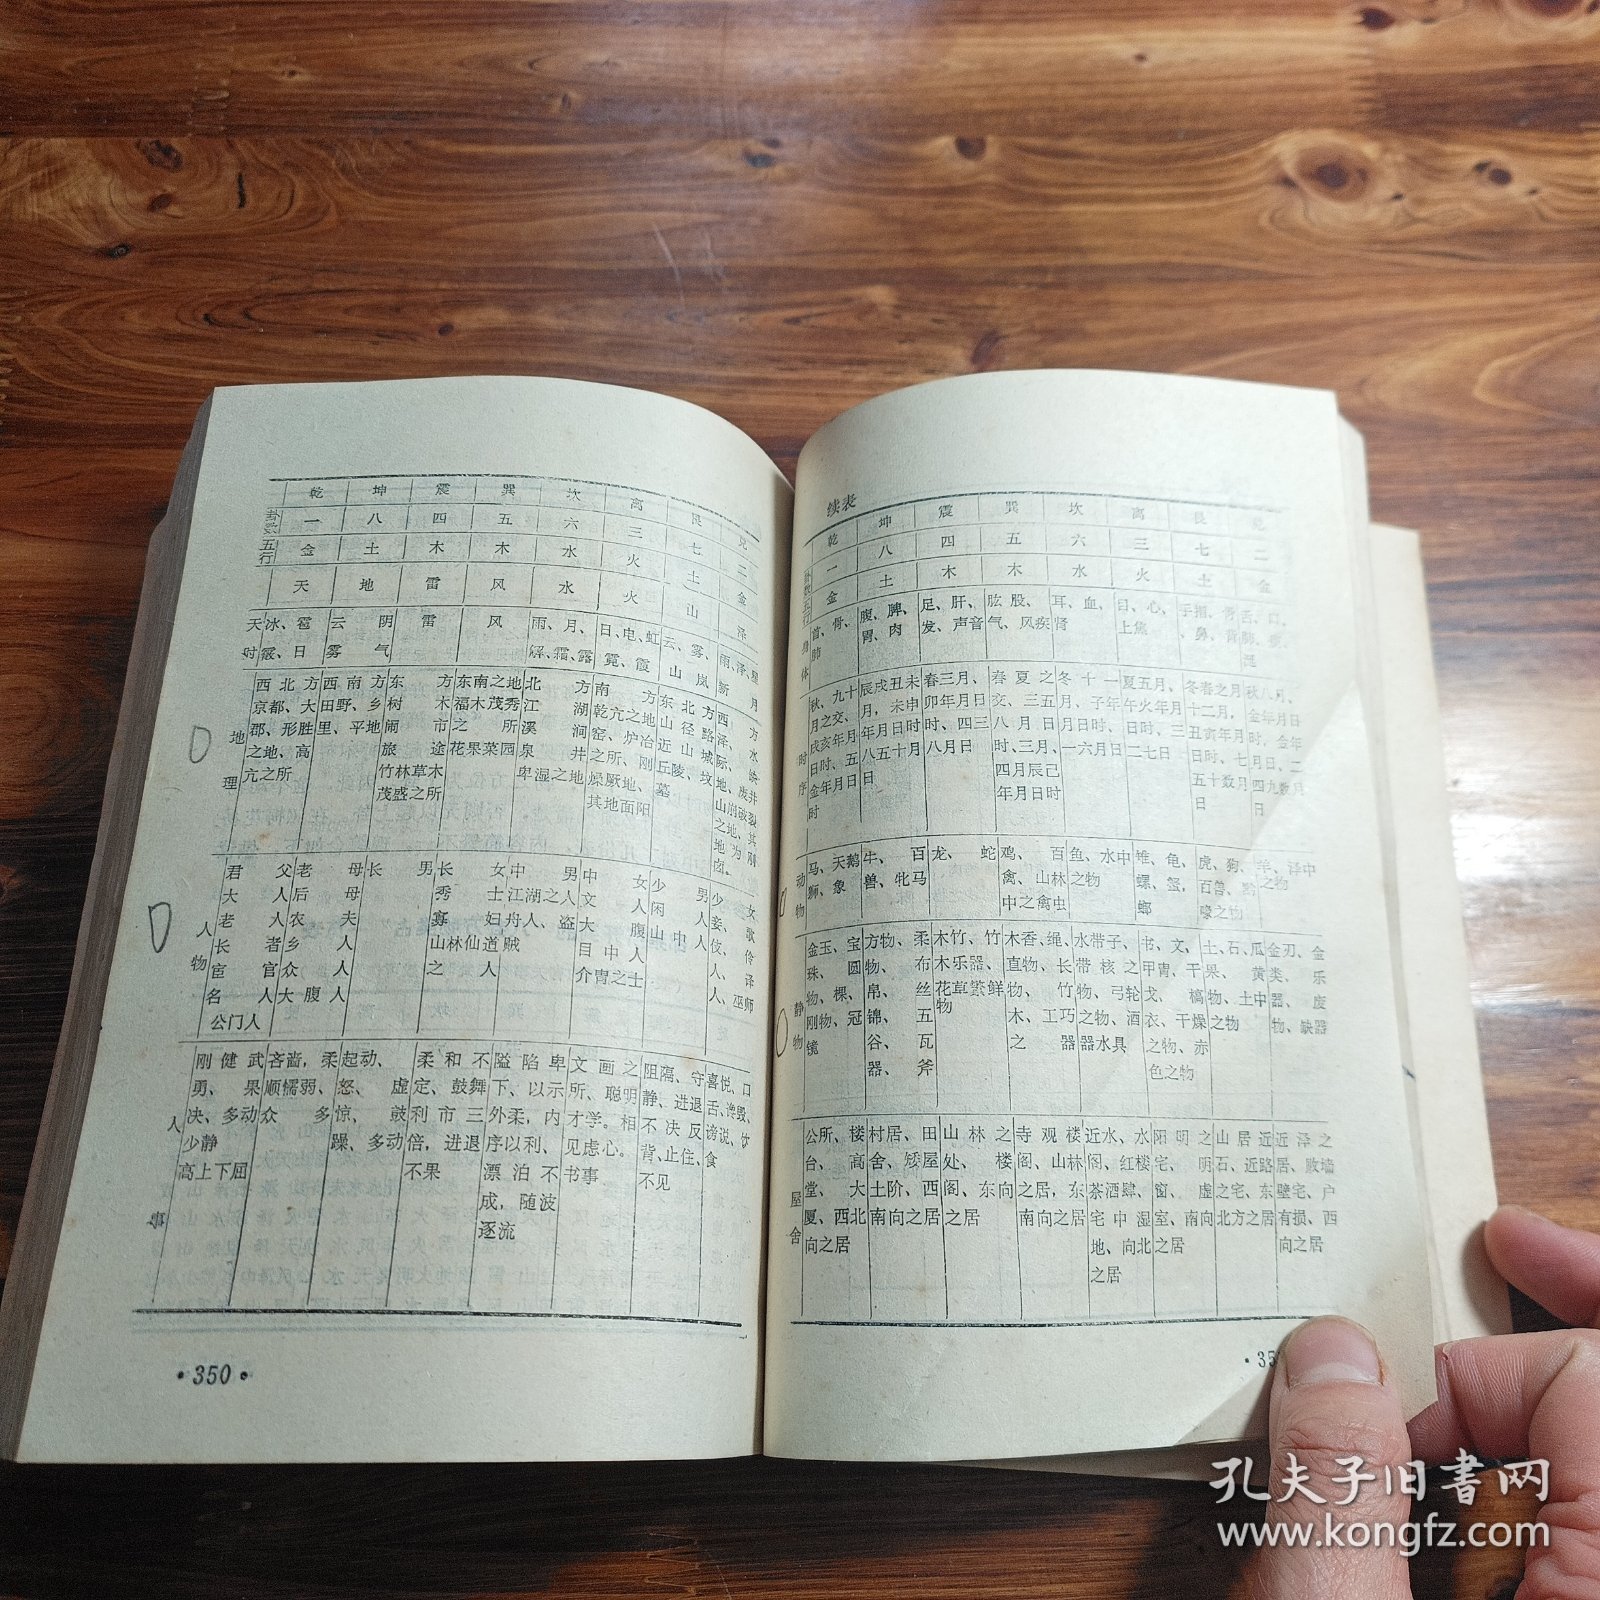 乾 坤 震 巽 坎 离 艮 兑
卦数 一 八 四 五 六 三 七 二
五行 金 土 木 木 水 火 土 金
天 地 雷 风 水 火 山 泽
天时
冰、雹、霰、日
云雾
阴气
雷
风
雨、月、
霜、露
日、电、虹、霓、霞
云、雾、山岚
雨、泽、新月、星
地理
西北方京都、大郡、形胜之地、高亢之所
西南方田野、乡里、平地
东方树木闹市旅途竹林草木茂盛之所
东南之地福木茂秀之所花果菜园
北方江湖溪涧泉井卑湿之地
南方乾亢之地窑、炉冶之所、刚燥厥地、其地面阳
东北方山径路近山城丘陵、坟墓
人物
君父大人老人长者宦官名人公门人
老母后母农夫乡人众人大腹人
长男
长女秀士寡妇山林仙道之人
中男江湖之人舟人、盗贼
中女文人大腹目中人介胄之士
少男闲人山中人
少女妾、歌伎、伶人、译人、巫师
人事
刚健武勇、果决、多动少静高上下屈
吝啬，柔顺懦弱、众多
起动、怒、虚惊、鼓躁、多动
柔和不定、鼓舞利市三倍，进退不果
隘陷卑下、以示外柔，内序以利、漂泊不成，随波逐流
文画之所、聪明才学。相见虑心。书事
阻隔、守静、进退不决反背、止住、不见
喜悦、口舌、谗毁、谤说、饮食
·350·
续表
乾 坤 震 巽 坎 离 艮 兑
卦数 一 八 四 五 六 三 七 二
五行 金 土 木 木 水 火 土 金
身体
首、骨、肺
腹、脾、胃、肉
足、肝、发、声音
肱股、气、风疾
耳、血、肾
目、心、上焦
时序
秋、九十月之交、戌亥年月日时、五金年月日时
辰戌丑未月，未申年月日时、八五十月日
春三月、卯年月日时、四三八月日
春夏之交、三五八月日时、三月、四月辰巳年月日时
冬十一月、子年月日时、一六月日
夏五月、午火年月日时、三二七日
冬春之月十二月，丑寅年月日时、七月日、五十数月日
秋八月、金年月日时，金年月日、二四九数月日
动物
马、天鹅、狮、象
牛、百兽、牝马
龙、蛇
鸡、百禽、山林中之禽虫
鱼、水中之物
雉、龟、螺、蟹，
虎、狗、百兽、黔喙之物
羊、泽中之物
静物
金玉、宝珠、圆物、棵、刚物、冠镜
方物、柔物、布帛、丝锦、五谷、瓦器、斧
木竹、竹木乐器、花草繁鲜物
木香、绳、直物、长物、竹木、工巧之器
水带子、带核之物、弓轮之物、酒器水具
书、文、甲胄、干戈、槁衣、干燥之物、赤色之物
土、石、瓜果、黄物、土中之物
金刃、金类、乐器、废物、缺器
屋舍
公所、楼台、高堂、大厦、西北向之居
村居、田舍、矮屋土阶、西南向之居
山林之处、楼阁、东向之居
寺观楼阁、山林之居，东南向之居
近水、水阁、红楼茶酒肆、宅中湿地、向北之居
阳明之宅、明窗、虚室、南向之居
山居近石、近路之宅、东北方之居
近泽之居、败墙壁宅、户有损、西向之居
孔夫子旧书网
www.kongfz.com